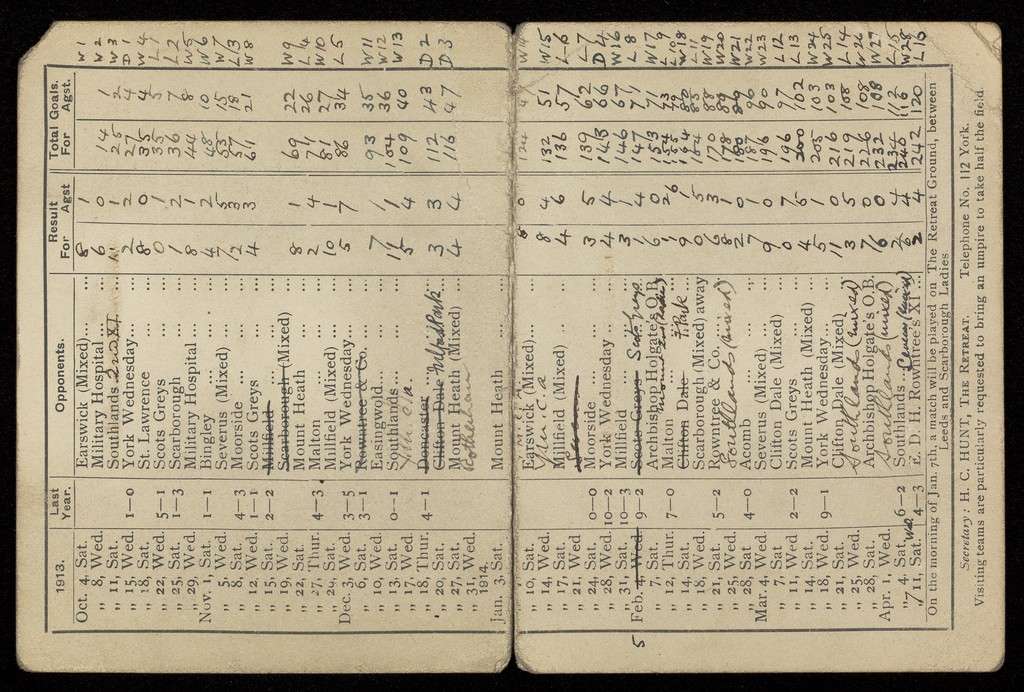 1913. Last Year. Opponents. Result For Agst Total Goals. For Agst.
Oct. 4, Sat. Earswick (Mixed)... ... 8 1 W 1
„ 8, Wed. Military Hospital ... 6 0 14 1 W 2
„ 11, Sat. Southlands 2nd XI ... 11 1 25 2 W 3
„ 15, Wed. 1—0 York Wednesday ... 2 2 27 4 D 1
„ 18, Sat. St. Lawrence ... 8 0 35 4 W 4
„ 22, Wed. 5—1 Scots Greys ... 0 1 35 5 L 1
„ 25, Sat. 1—3 Scarborough ... 1 2 36 7 L 2
„ 29, Wed. Military Hospital ... 8 1 44 8 W 5
Nov. 1, Sat. 1—1 Bingley ... 4 2 48 10 W 6
„ 5, Wed. Severus (Mixed) ... 7 5 55 15 W 7
„ 8, Sat. 4—3 Moorside ... 2 3 57 18 L 3
„ 12, Wed. 1—1 Scots Greys ... 4 3 61 21 W 8
„ 15, Sat. 2—2 Millfield ...
„ 19, Wed. Scarborough (Mixed) ...
„ 22, Sat. Mount Heath ... 8 1 69 22 W 9
„ 27, Thur. 4—3 Malton ... 2 4 71 26 L 4
„ 29, Sat. Millfield (Mixed) ... 10 1 81 27 W 10
Dec. 3, Wed. 3—5 York Wednesday... 5 7 86 34 L 5
„ 6, Sat. 3—1 Rowntree & Co. ...
„ 10, Wed. Easingwold... 7 1 93 35 W 11
„ 13, Sat. 0—1 Southlands... 11 1 104 36 W 12
„ 17, Wed. Y.M.C.A 5 4 109 40 W 13
„ 18, Thur. 4—1 Doncaster ...
„ 20, Sat. Clifton Dale Millfield Park 3 3 112 43 D 2
„ 27, Sat. Mount Heath (Mixed) 4 4 116 47 D 3
„ 31, Wed. Rotherham
1914.
Jan. 3, Sat. Mount Heath ... 8 0 124 47 W 14
„ 10, Sat. Earswick (Mixed)... 8 4 132 51 W 15
„ 14, Wed. Y.M.C.A
„ 17, Sat. Millfield (Mixed) ... 4 6 136 57 L 6
„ 21, Wed.
„ 24, Sat. 0—0 Moorside ... 3 5 139 62 L 7
„ 28, Wed. 10—2 York Wednesday ... 4 4 143 66 D 4
„ 31, Sat. 10—3 Millfield ... 3 1 146 67 W 16
5 Feb. 4, Wed. 9—2 Scots Greys Scots Greys 1 4 147 71 L 8
„ 7, Sat. Archbishop Holgate's O.B. 6 0 153 71 W 17
„ 12, Thur. 7—0 Malton ... 1 2 154 73 L 9
„ 14, Sat. Clifton Dale Park
„ 18, Wed. Scarborough (Mixed) away
„ 21, Sat. 5—2 Rowntree & Co. ... 6 3 170 88 W 19
„ 25, Wed. Southlands (mixed) 8 1 178 89 W 20
„ 28, Sat. 4—0 Acomb ... 2 0 180 89 W 21
Mar. 4, Wed. Severus (Mixed) ... 7 1 187 90 W 22
„ 7, Sat. Clifton Dale (Mixed) ... 9 0 196 90 W 23
„ 11, Wed. 2—2 Scots Greys ... 0 7 196 97 L 12
„ 14, Sat. Mount Heath (Mixed) ... 4 5 200 102 L 13
„ 18, Wed. 9—1 York Wednesday ... 5 1 205 103 W 24
„ 21, Sat. Clifton Dale (Mixed) ... 11 0 216 103 W 25
„ 25, Wed. Southlands (mixed) 3 5 219 108 L 14
„ 28, Sat. Archbishop Holgate's O.B. 7 0 226 108 W 26
Apr. 1, Wed. Southlands (mixed) 6 0 232 108 W 27
„ 4, Sat. 6—2 Southlands ... 2 4 234 112 L 15
7 6 4 240 116 W 28
„ 11, Sat. 4—3 E. D. H. Rowntree's XI ... 2 4 242 120 L 16
On the morning of Jan. 7th, a match will be played on The Retreat Ground, between
Leeds and Scarborough Ladies.
Secretary: H. C. HUNT, THE RETREAT. Telephone No. 112 York.
Visiting teams are particularly requested to bring an umpire to take half the field.